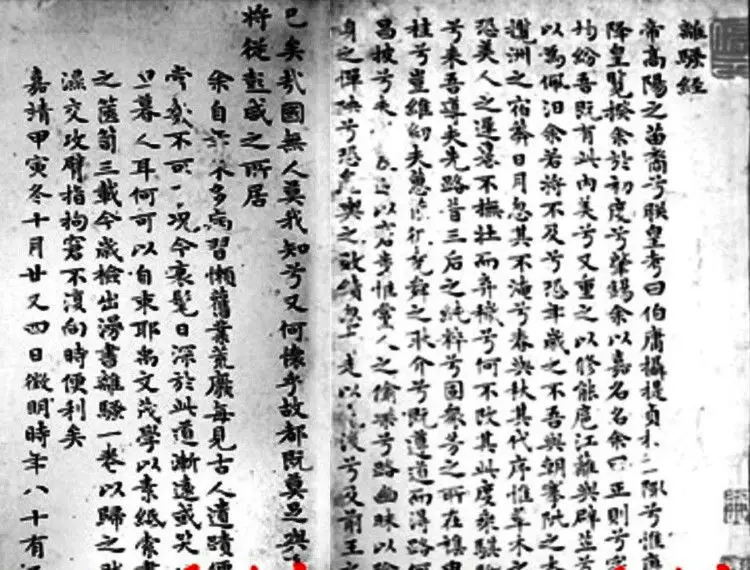 離騷經
帝高陽之苗裔兮朕皇考曰伯庸攝提貞兮惟庚
降皇覽揆余於初度兮肇錫余以嘉名名余曰正則兮字
均紛吾既有此內美兮又重之以修能扈江蘺與辟芷兮
以為佩汩余若將不及兮恐年歲之不吾與朝搴阰之木
攬洲之宿莽日月忽其不淹兮春與秋其代序惟草木之
恐美人之遲暮不撫壯而棄穢兮何不改其此度乘騏
兮來吾導夫先路昔三后之純粹兮固眾芳之所在雜申
桂兮豈維紉夫蕙堯舜之耿介兮既遵道而得路何
昌披兮夫以窘步惟黨人之偷樂兮路幽昧以險
身之憚殃兮恐皇輿之敗績忽走以後兮及前王之
已矣哉國無人莫我知兮又何懷乎故都既莫足與
將從彭咸之所居
余自多病習懶舊業荒廢每見古人遺蹟便
不可況今衰髦日深於此道漸遠或笑
暮人耳何可以自束耶禹文茂學以素紙索書
之篋笥三載今歲檢出漫書離騷一卷以歸之時
濕交攻臂指拘窘不復向時便利矣
嘉靖甲寅冬十月廿又四日徵明時年八十有